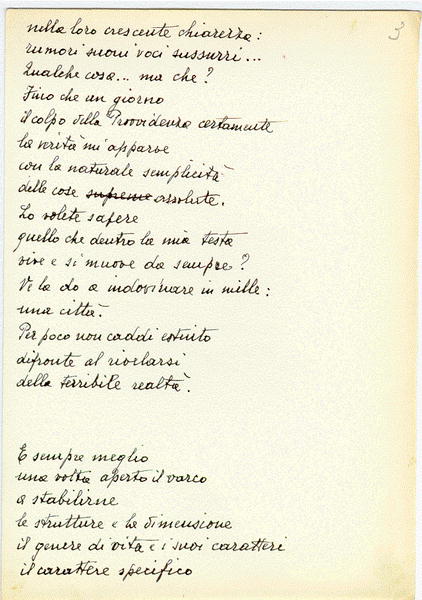 3
nella loro crescente chiarezza:
rumori suoni voci sussurri...
Qualche cosa... ma che?
Fino che un giorno
il colpo della Provvidenza certamente
la verità mi apparve
con la naturale semplicità
delle cose supreme assolute.
Lo volete sapere
quello che dentro la mia testa
vive e si muove da sempre?
Ve la do a indovinare in mille:
una città.
Per poco non caddi estinto
difronte al rivelarsi
della terribile realtà.
E sempre meglio
una volta aperto il varco
a stabilirne
le strutture e la dimensione
il genere di vita e i suoi caratteri
il carattere specifico